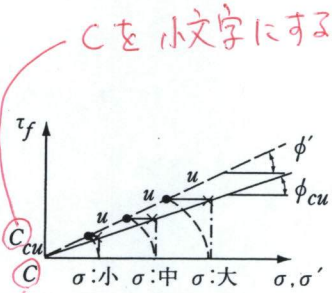 Cを小文字にする
τf
φ′
u
φcu
u
u
Ccu
C
σ:小 σ:中 σ:大 σ,σ′